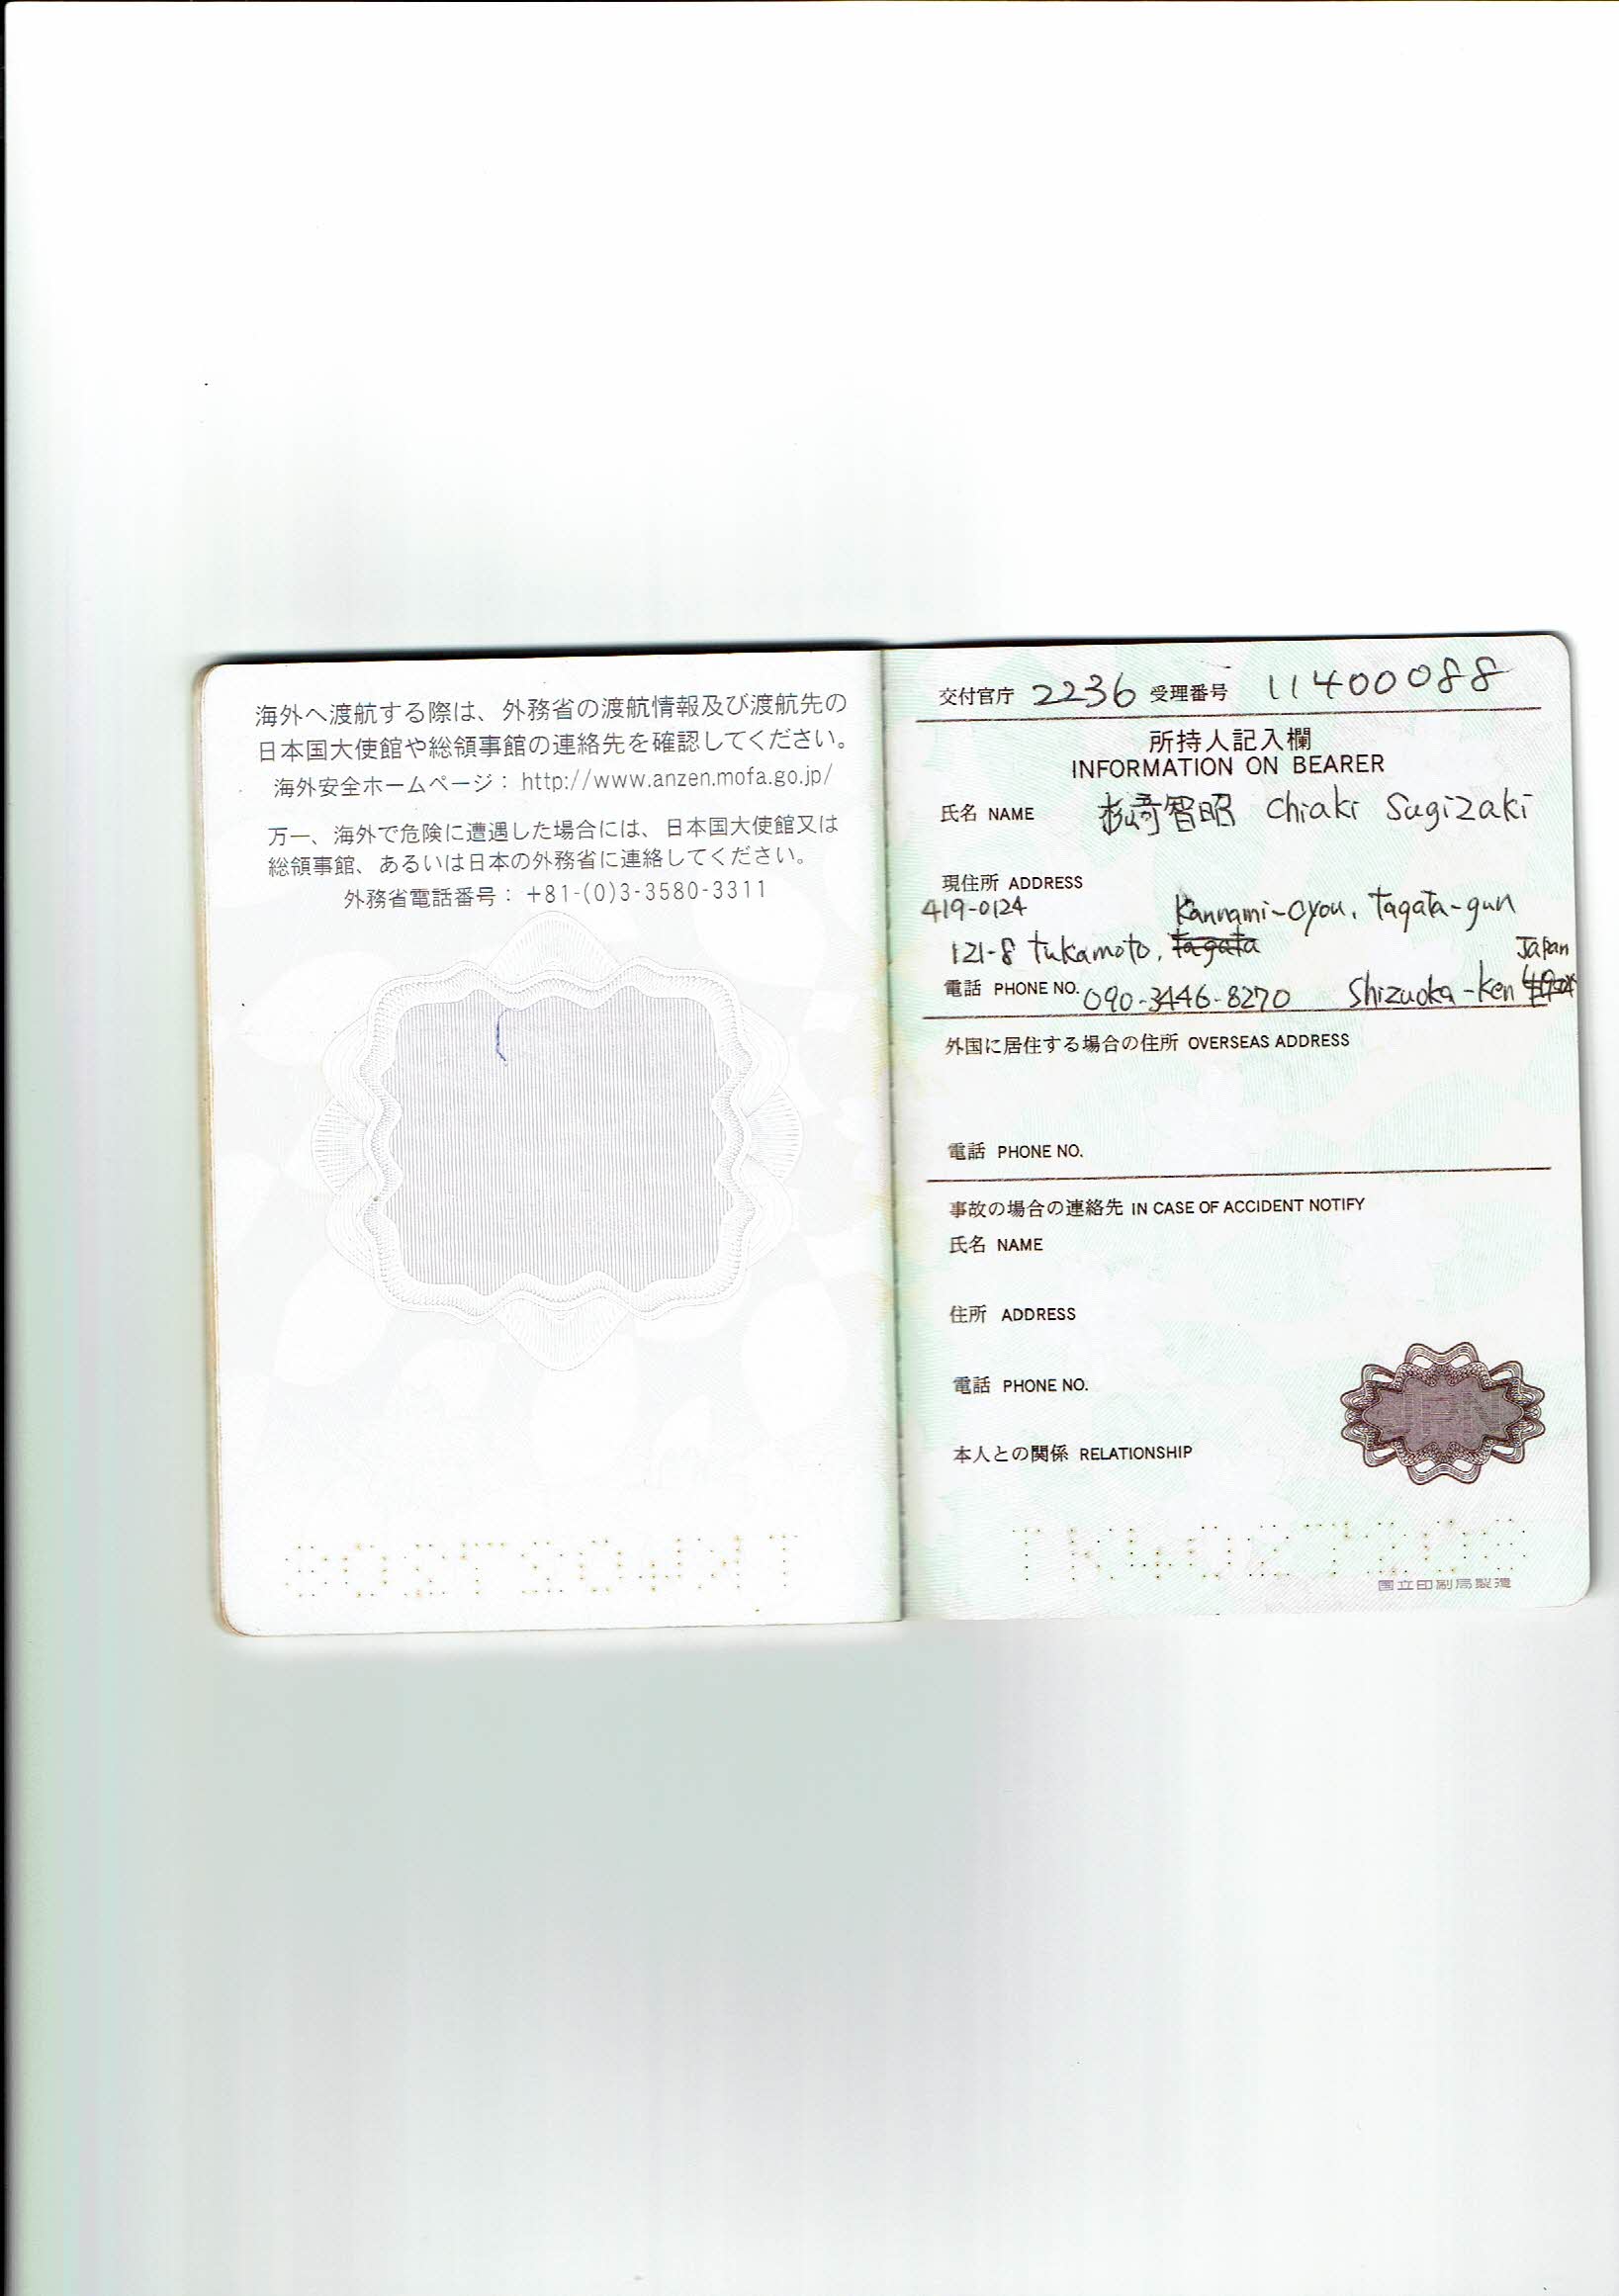 海外へ渡航する際は、外務省の渡航情報及び渡航先の
日本国大使館や総領事館の連絡先を確認してください。
海外安全ホームページ： http://www.anzen.mofa.go.jp/
万一、海外で危険に遭遇した場合には、日本国大使館又は
総領事館、あるいは日本の外務省に連絡してください。
外務省電話番号： +81-(0)3-3580-3311
交付官庁 2236 受理番号 11400088
所持人記入欄
INFORMATION ON BEARER
氏名 NAME 杉崎智昭 Chiaki Sugizaki
現住所 ADDRESS
419-0124 Kannami-cyou, Tagata-gun
121-8 tukamoto, tagata Japan
電話 PHONE NO. 090-3446-8270 Shizuoka-ken
外国に居住する場合の住所 OVERSEAS ADDRESS
電話 PHONE NO.
事故の場合の連絡先 IN CASE OF ACCIDENT NOTIFY
氏名 NAME
住所 ADDRESS
電話 PHONE NO.
本人との関係 RELATIONSHIP
JPN
国立印刷局製造